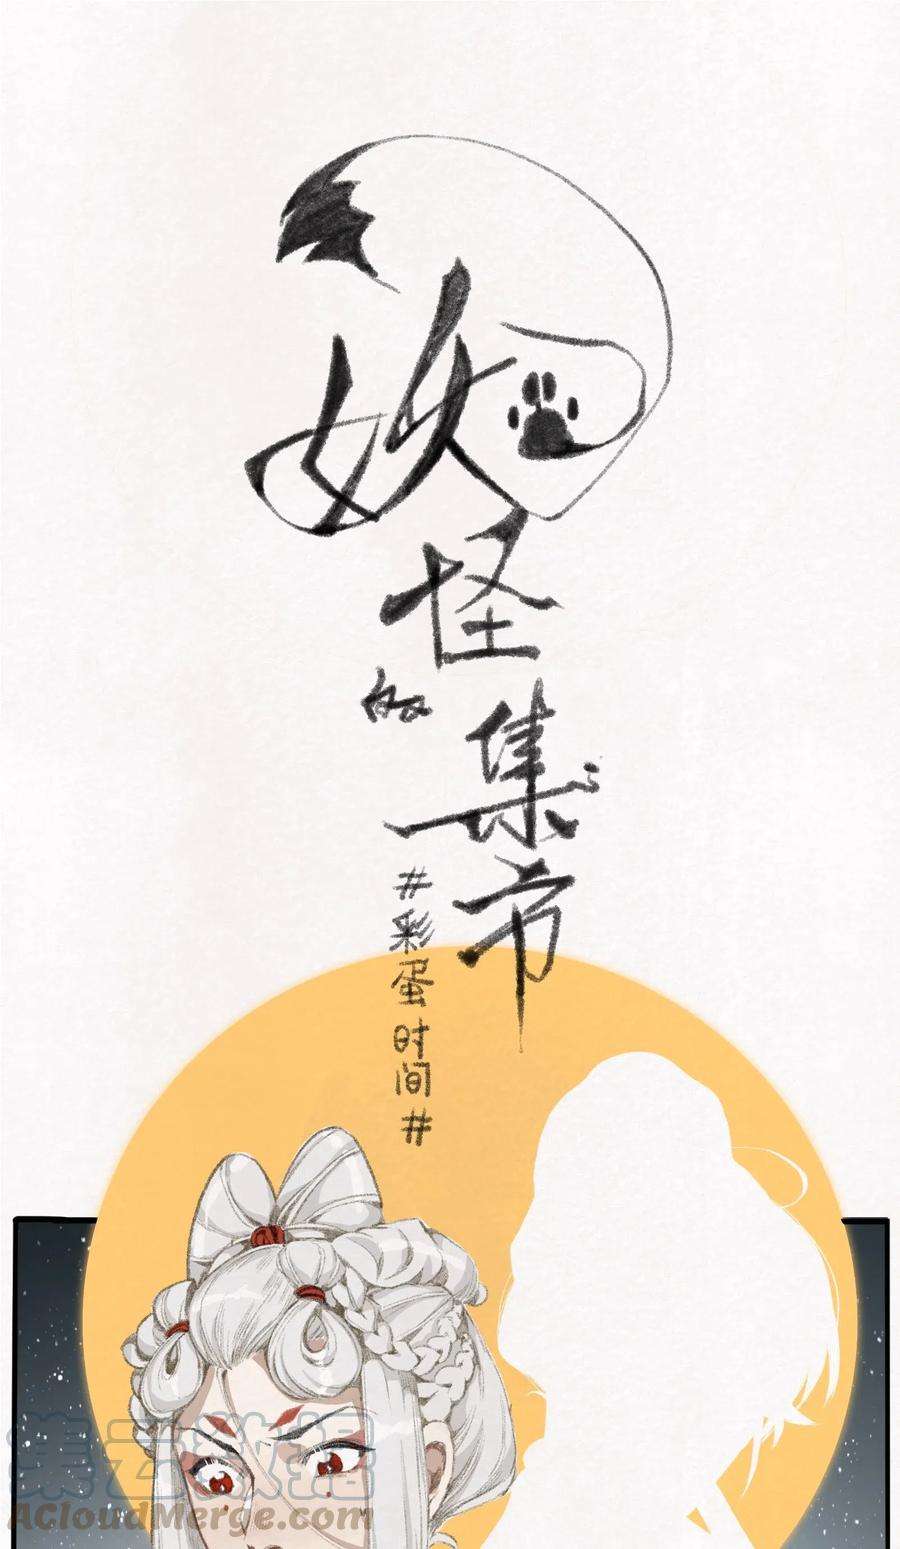 妖怪
的
集市
#彩蛋时间#
集云数据
ACloudMerge.com